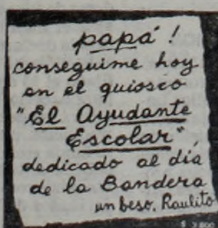 papá!
conseguime hoy
en el quiosco
"El Ayudante
Escolar"
dedicado al día
de la Bandera
un beso, Raulito